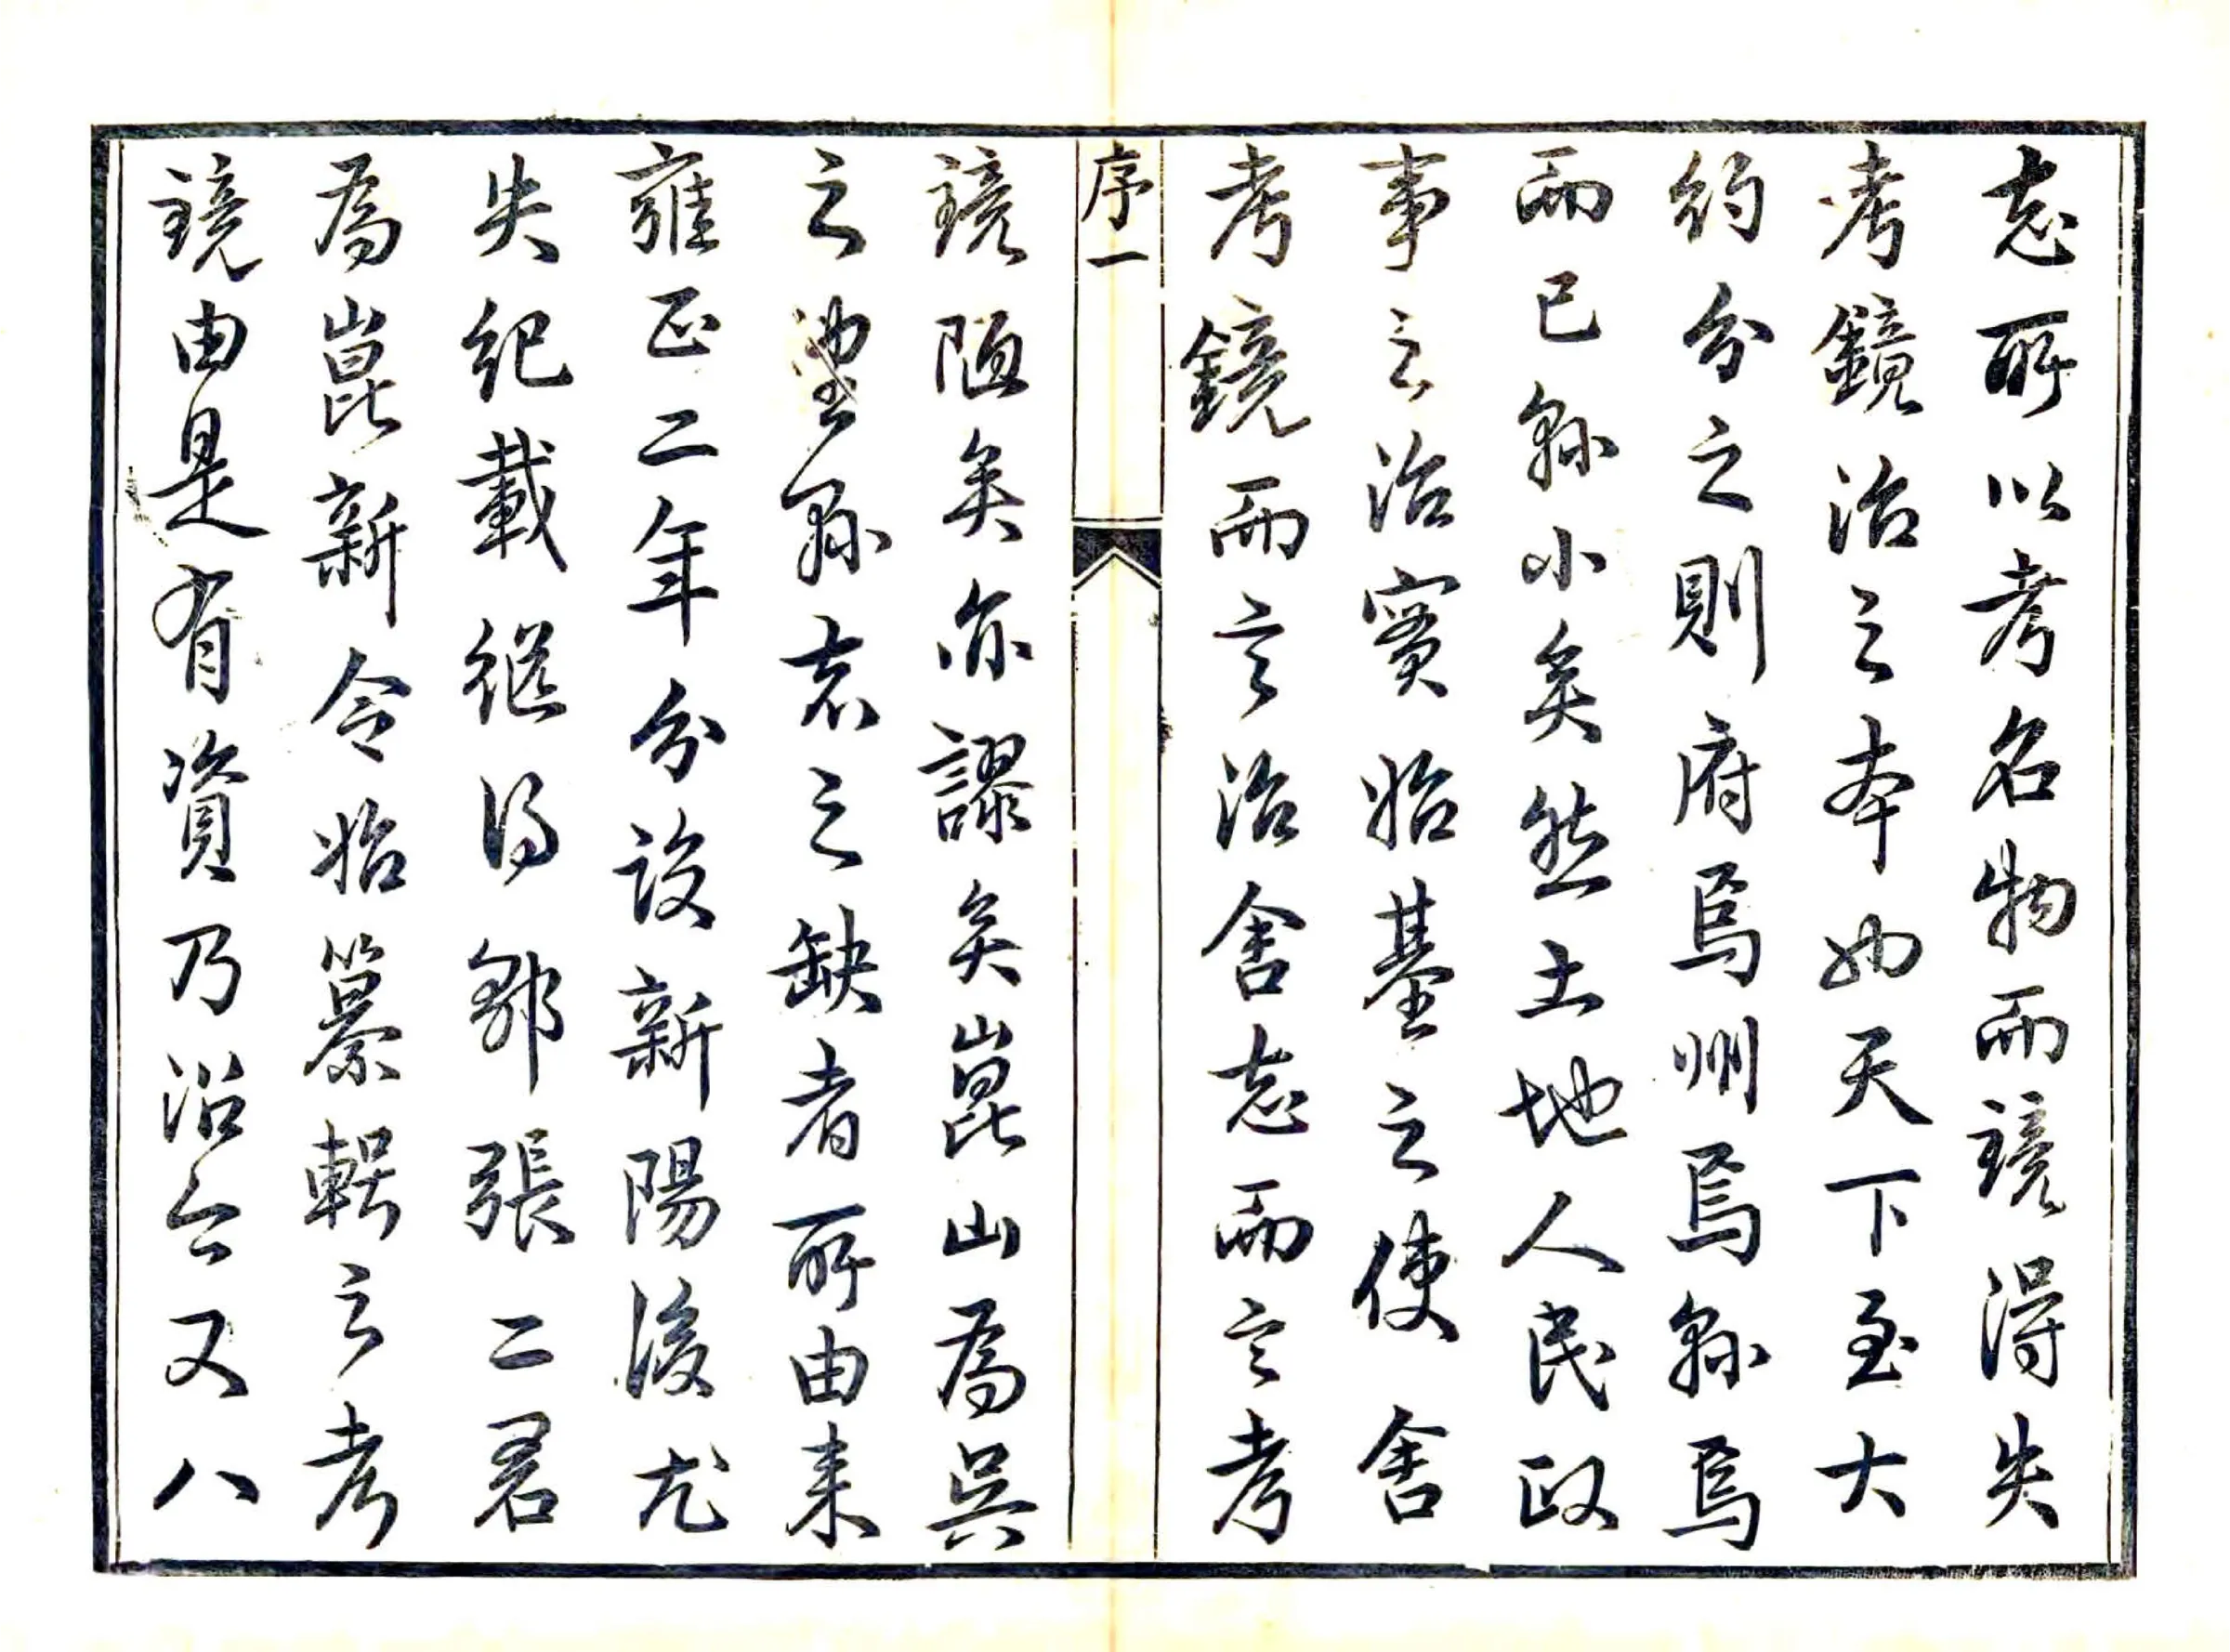 志所以考名物而鏡得失
考鏡治之本也天下至大
約分之則府焉州焉縣焉
而已縣小矣然土地人民政
事之治實始基之使舍
考鏡而言治舍志而言考
序一
鏡陋矣亦謬矣崑山為吳
之望縣志之缺者所由来
雍正二年分設新陽後尤
失紀載繼得鄒張二君
為崑新令始纂輯之考
鏡由是有資乃沿今又八